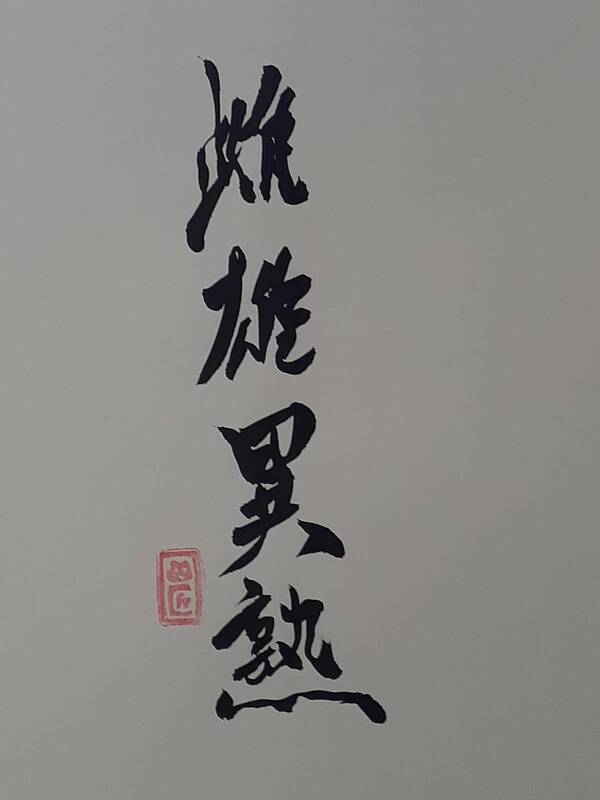 雌雄異熟